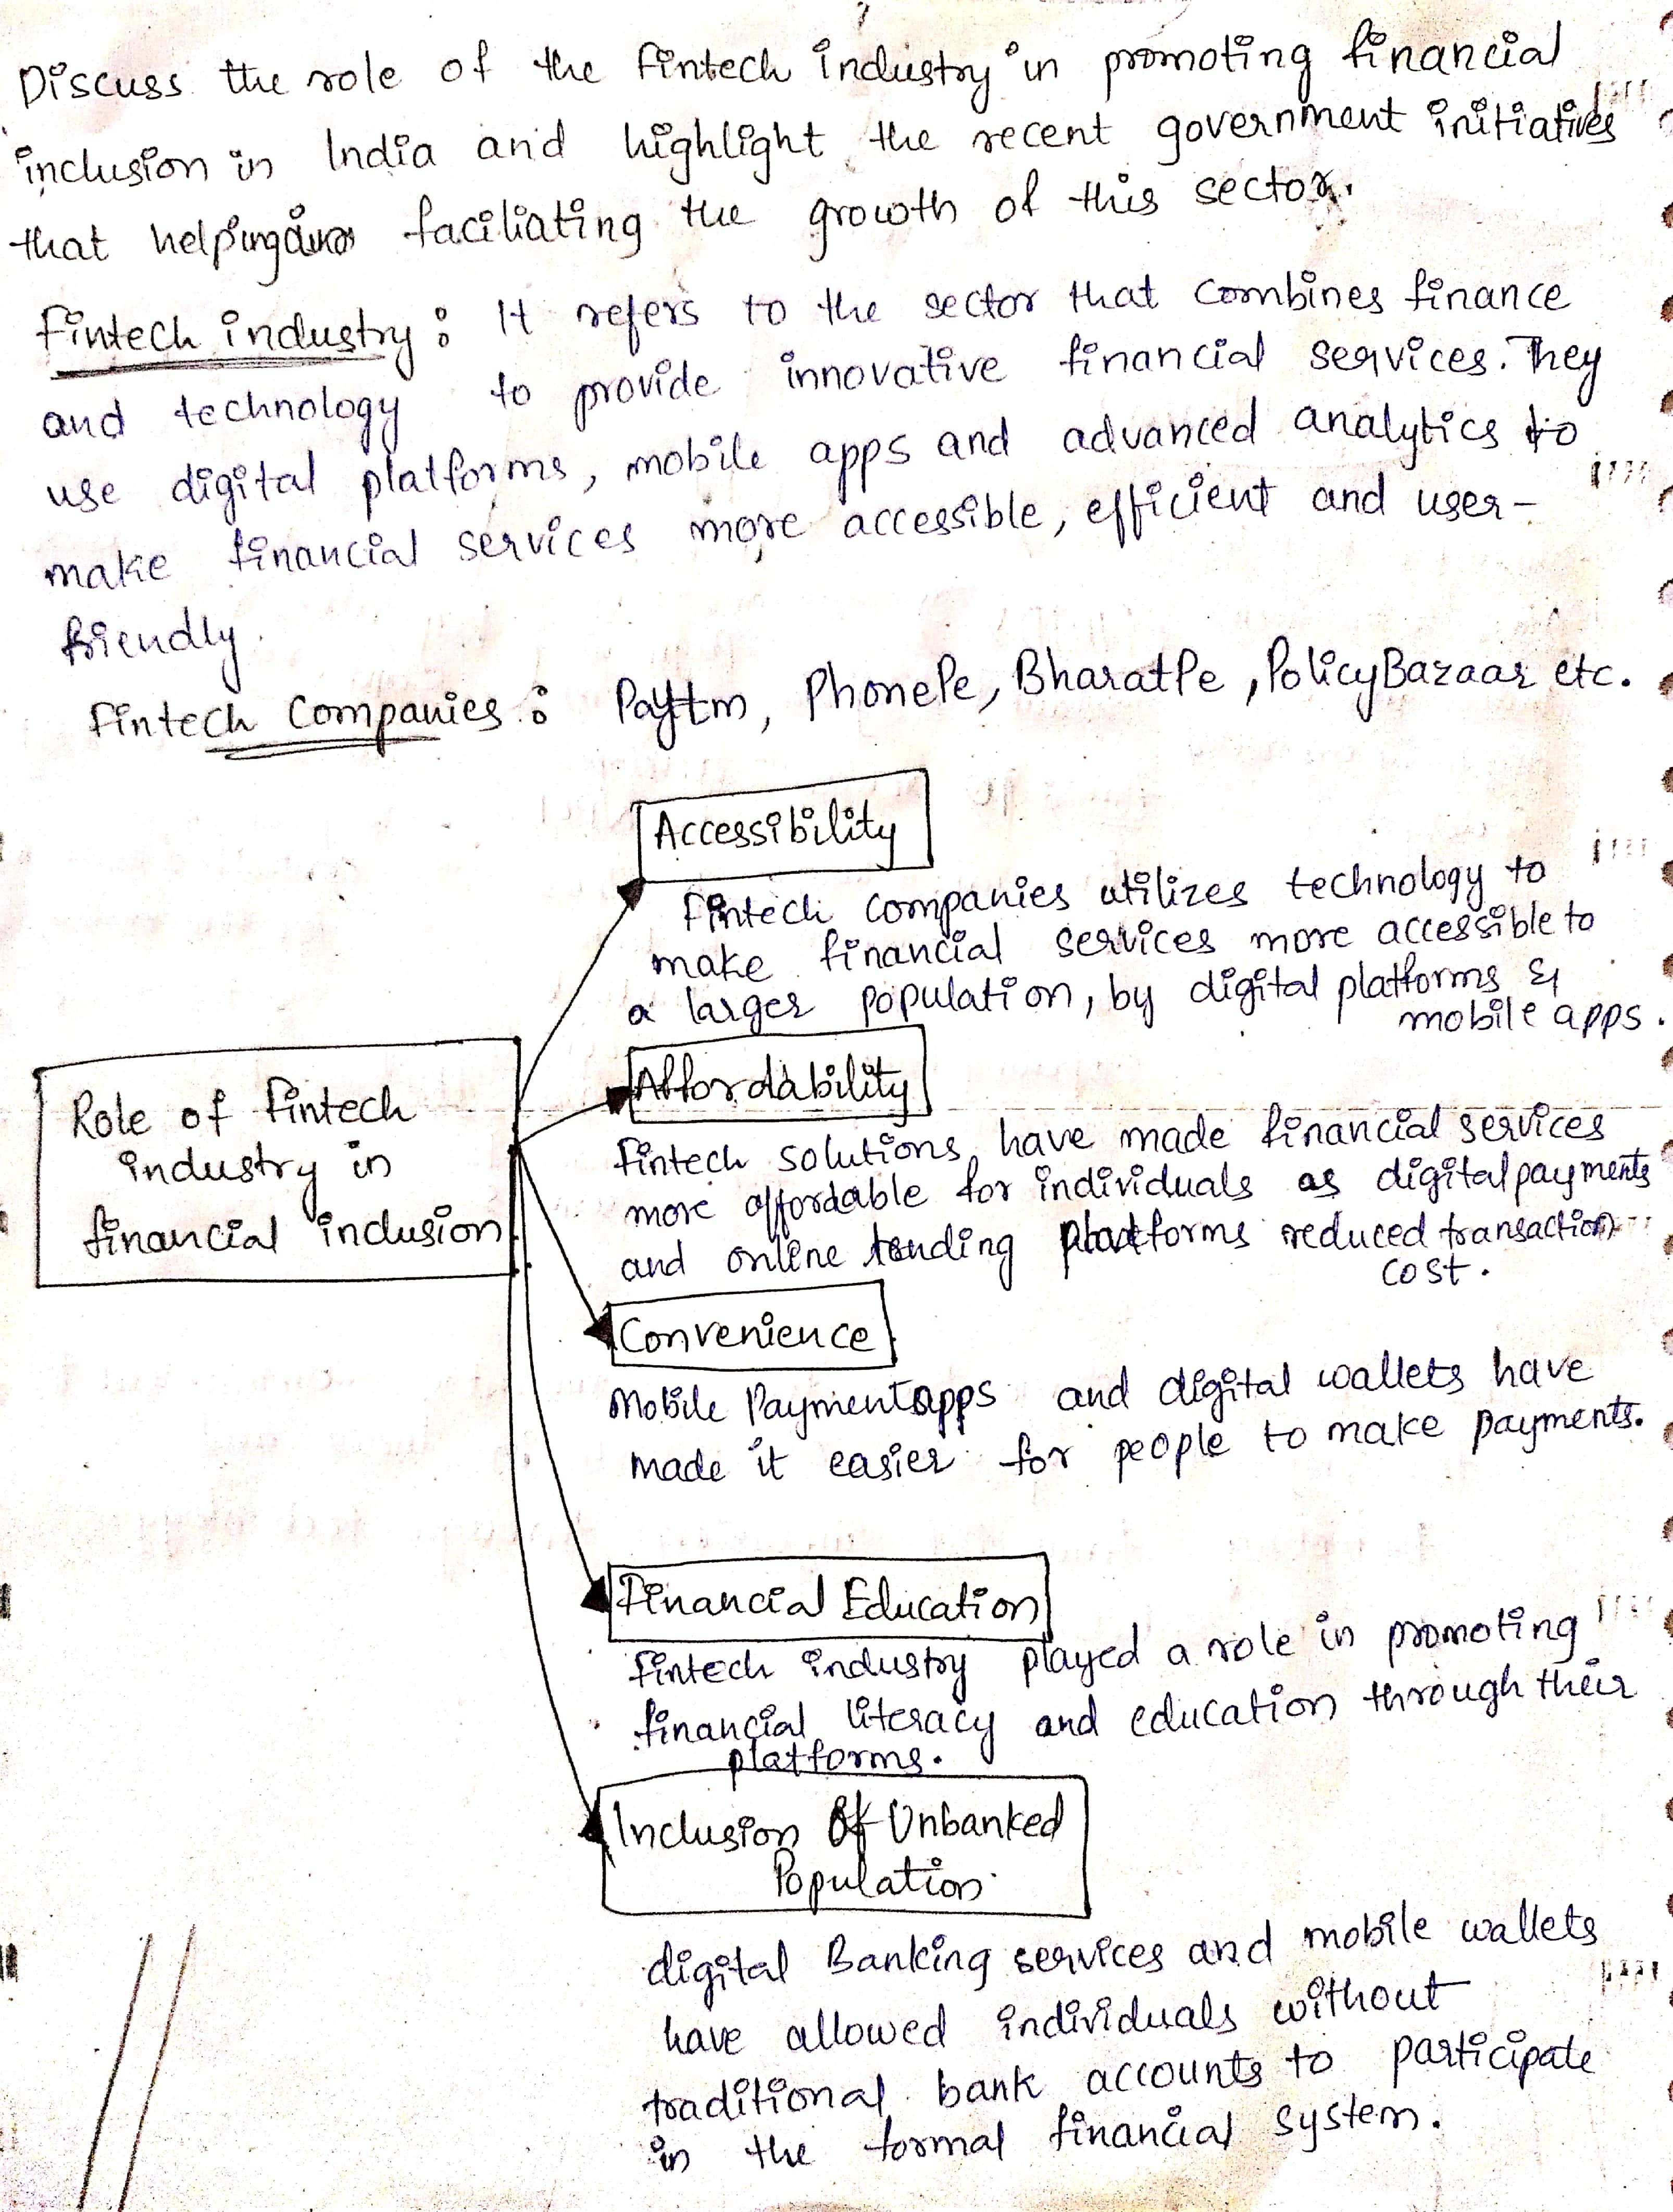 Discuss the role of the fintech industry in promoting financial
inclusion in India and highlight the recent government initiatives
that helping faciliating the growth of this sector.
Fintech industry : It refers to the sector that combines finance
and technology to provide innovative financial services. They
use digital platforms, mobile apps and advanced analytics to
make financial services more accessible, efficient and user-
friendly.
Fintech Companies : Paytm, PhonePe, BharatPe, PolicyBazaar etc.
Accessibility
Fintech companies utilizes technology to
make financial services more accessible to
a larger population, by digital platforms &
mobile apps.
Role of Fintech
industry in
financial inclusion
Affordability
Fintech solutions have made financial services
more affordable for individuals as digital payments
and online lending platforms reduced transaction
cost.
Convenience
Mobile Payment apps and digital wallets have
made it easier for people to make payments.
Financial Education
Fintech industry played a role in promoting
financial literacy and education through their
platforms.
Inclusion Of Unbanked
Population
digital Banking services and mobile wallets
have allowed individuals without
traditional bank accounts to participate
in the formal financial system.